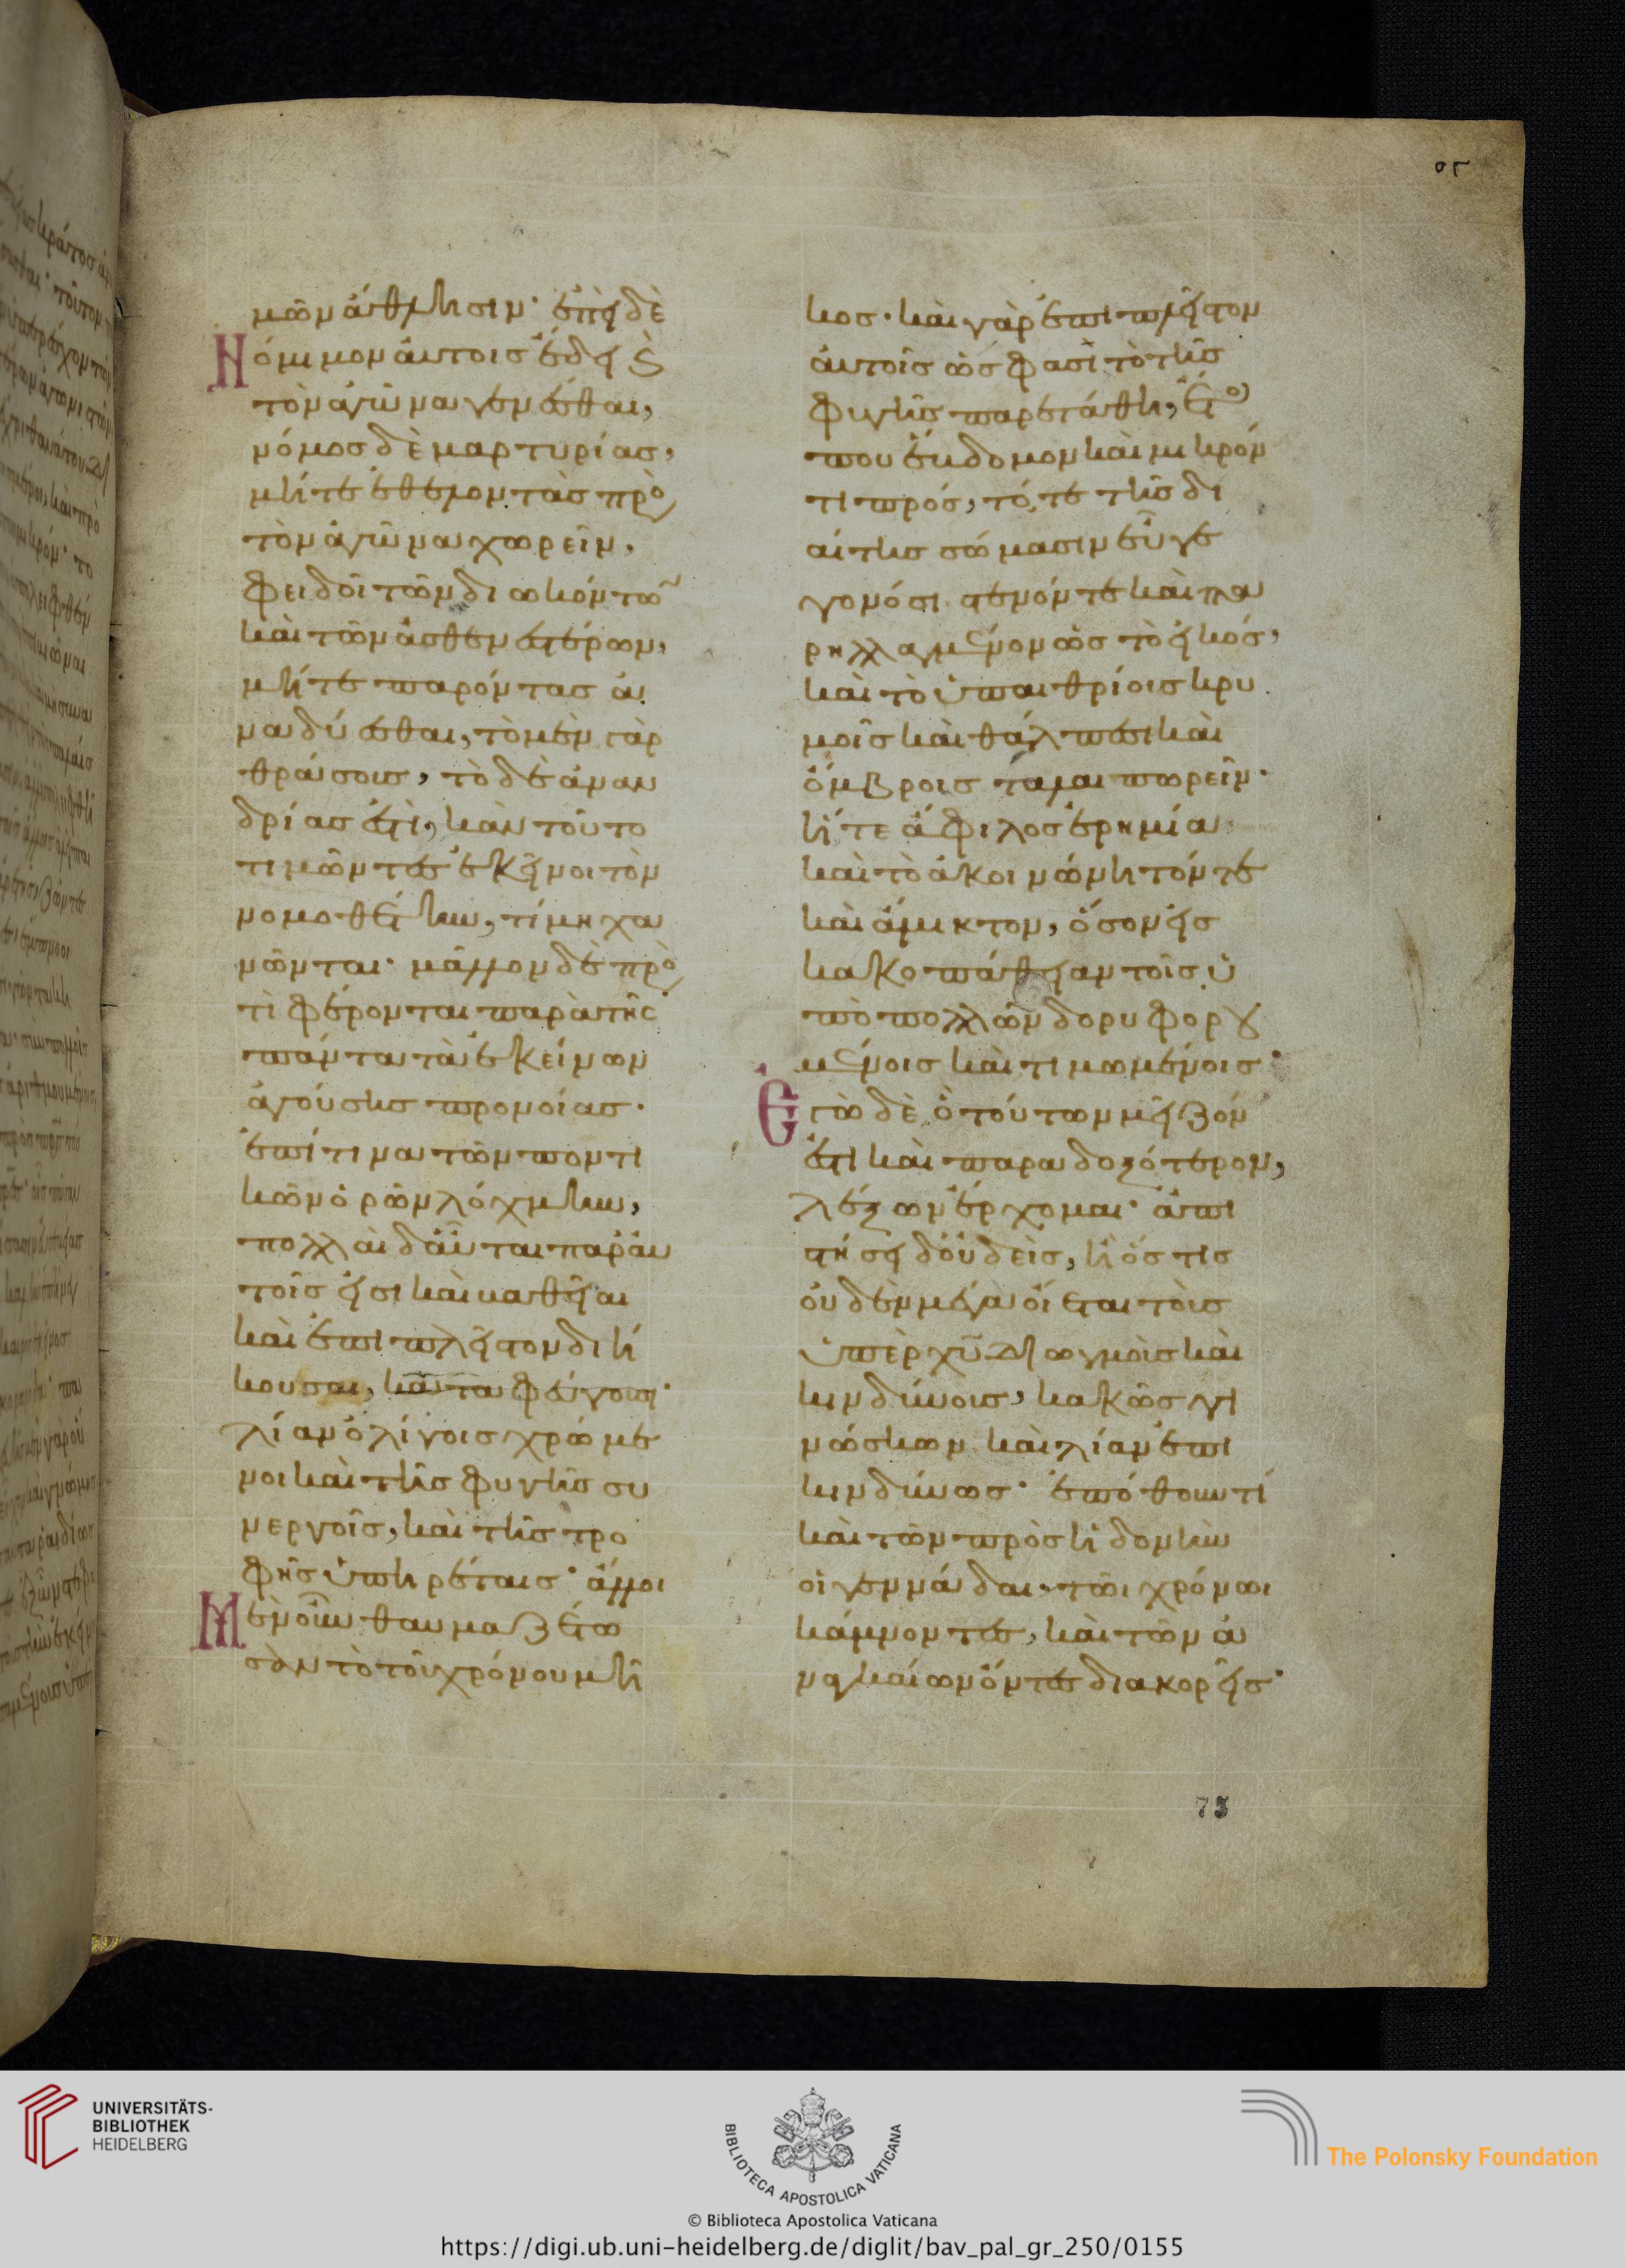 μῶν ἄθλησιν· ἐπεὶ δὲ
Νόμιμον ἀυτοις ἔδει ϗ
τὸν ἀγῶνα γενέσθαι,
νόμος δὲ μαρτυρίας,
μήτε ἐθελοντὰς πρὸς
τὸν ἀγῶνα χωρεῖν,
φειδοῖ τῶν διωκόντων
καὶ τῶν ἀσθενεστέρων,
μήτε παρόντας ἀ
ναδύεσθαι, τὸ μὲν γὰρ
θράσους, τὸ δὲ ἀναν
δρίας ἐστὶ, κἀν τοῦτο
τιμῶντες ἐκεῖνοι τὸν
νομοθέτην, τί μηχα
νῶνται· μᾶλλον δὲ πρὸς
τὶ φέρονται παρὰ τῆς
πάντα τὰ ἐκείνων
ἀγούσης προνοίας·
ἐπί τινα τῶν ποντι
κῶν ὀρῶν λόχμην,
πολλαὶ δἁῦται παρ᾽ ἀυ
τοῖς εἰσι καὶ βαθεῖαι
καὶ ἐπὶ πλεῖστον διή
κουσαι, καταφεύγουσι·
λίαν ὀλίγοις χρώμε
νοι καὶ τῆς φυγῆς συ
νεργοῖς, καὶ τῆς τρο
φῆς ὑπηρέταις· ἄλλοι
Μὲν οὖν θαυμαζέτω
σαν τὸ τοῦ χρόνου μῆ
κος· καὶ γὰρ ἐπὶ πλεῖστον
ἀυτοῖς ὥς φασὶ τὸ τῆς
φυγῆς παρετάθη, ἔτος
που ἕβδομον καὶ μικρόν
τι πρός, τό,τε τῆς δι
αίτης σώμασιν εὖ γε
γονόσι στενόν τε καὶ πα
ρηλλαγμένον ὡς τὸ εἰκός,
καὶ τὸ ὑπαιθρίοις κρυ
μοῖς καὶ θάλπεσι καὶ
ὄμβροις ταλαιπωρεῖν·
ἥ τε ἄφιλος ἐρημία
καὶ τὸ ἀκοινώνητόν τε
καὶ ἄμικτον, ὅσον εἰς
κακοπάθειαν τοῖς ὑ
πὸ πολλῶν δορυφορου
μένοις καὶ τιμωμένοις·
Ἐγὼ δὲ ὃ τούτων μεῖζόν
ἐστι καὶ παραδοξότερον,
λέξων ἔρχομαι· ἀπι
στήσει δ᾽ οὐδεὶς, ἢ ὅστις
οὐδὲν μέγα οἴεται τοὺς
ὑπὲρ χυ διωγμοὺς καὶ
κινδύνους, κακῶς γι
νώσκων καὶ λίαν ἐπι
κινδύνως· ἐπόθουν τί
καὶ τῶν πρὸς ἡδονὴν
οἱ γεννάδαι· τῶι χρόνωι
κάμνοντες, καὶ τῶν ἀ
ναγκαίων ὄντες διακορεῖς·
73
UNIVERSITÄTS-
BIBLIOTHEK
HEIDELBERG
BIBLIOTECA APOSTOLICA VATICANA
The Polonsky Foundation
© Biblioteca Apostolica Vaticana
https://digi.ub.uni-heidelberg.de/diglit/bav_pal_gr_250/0155